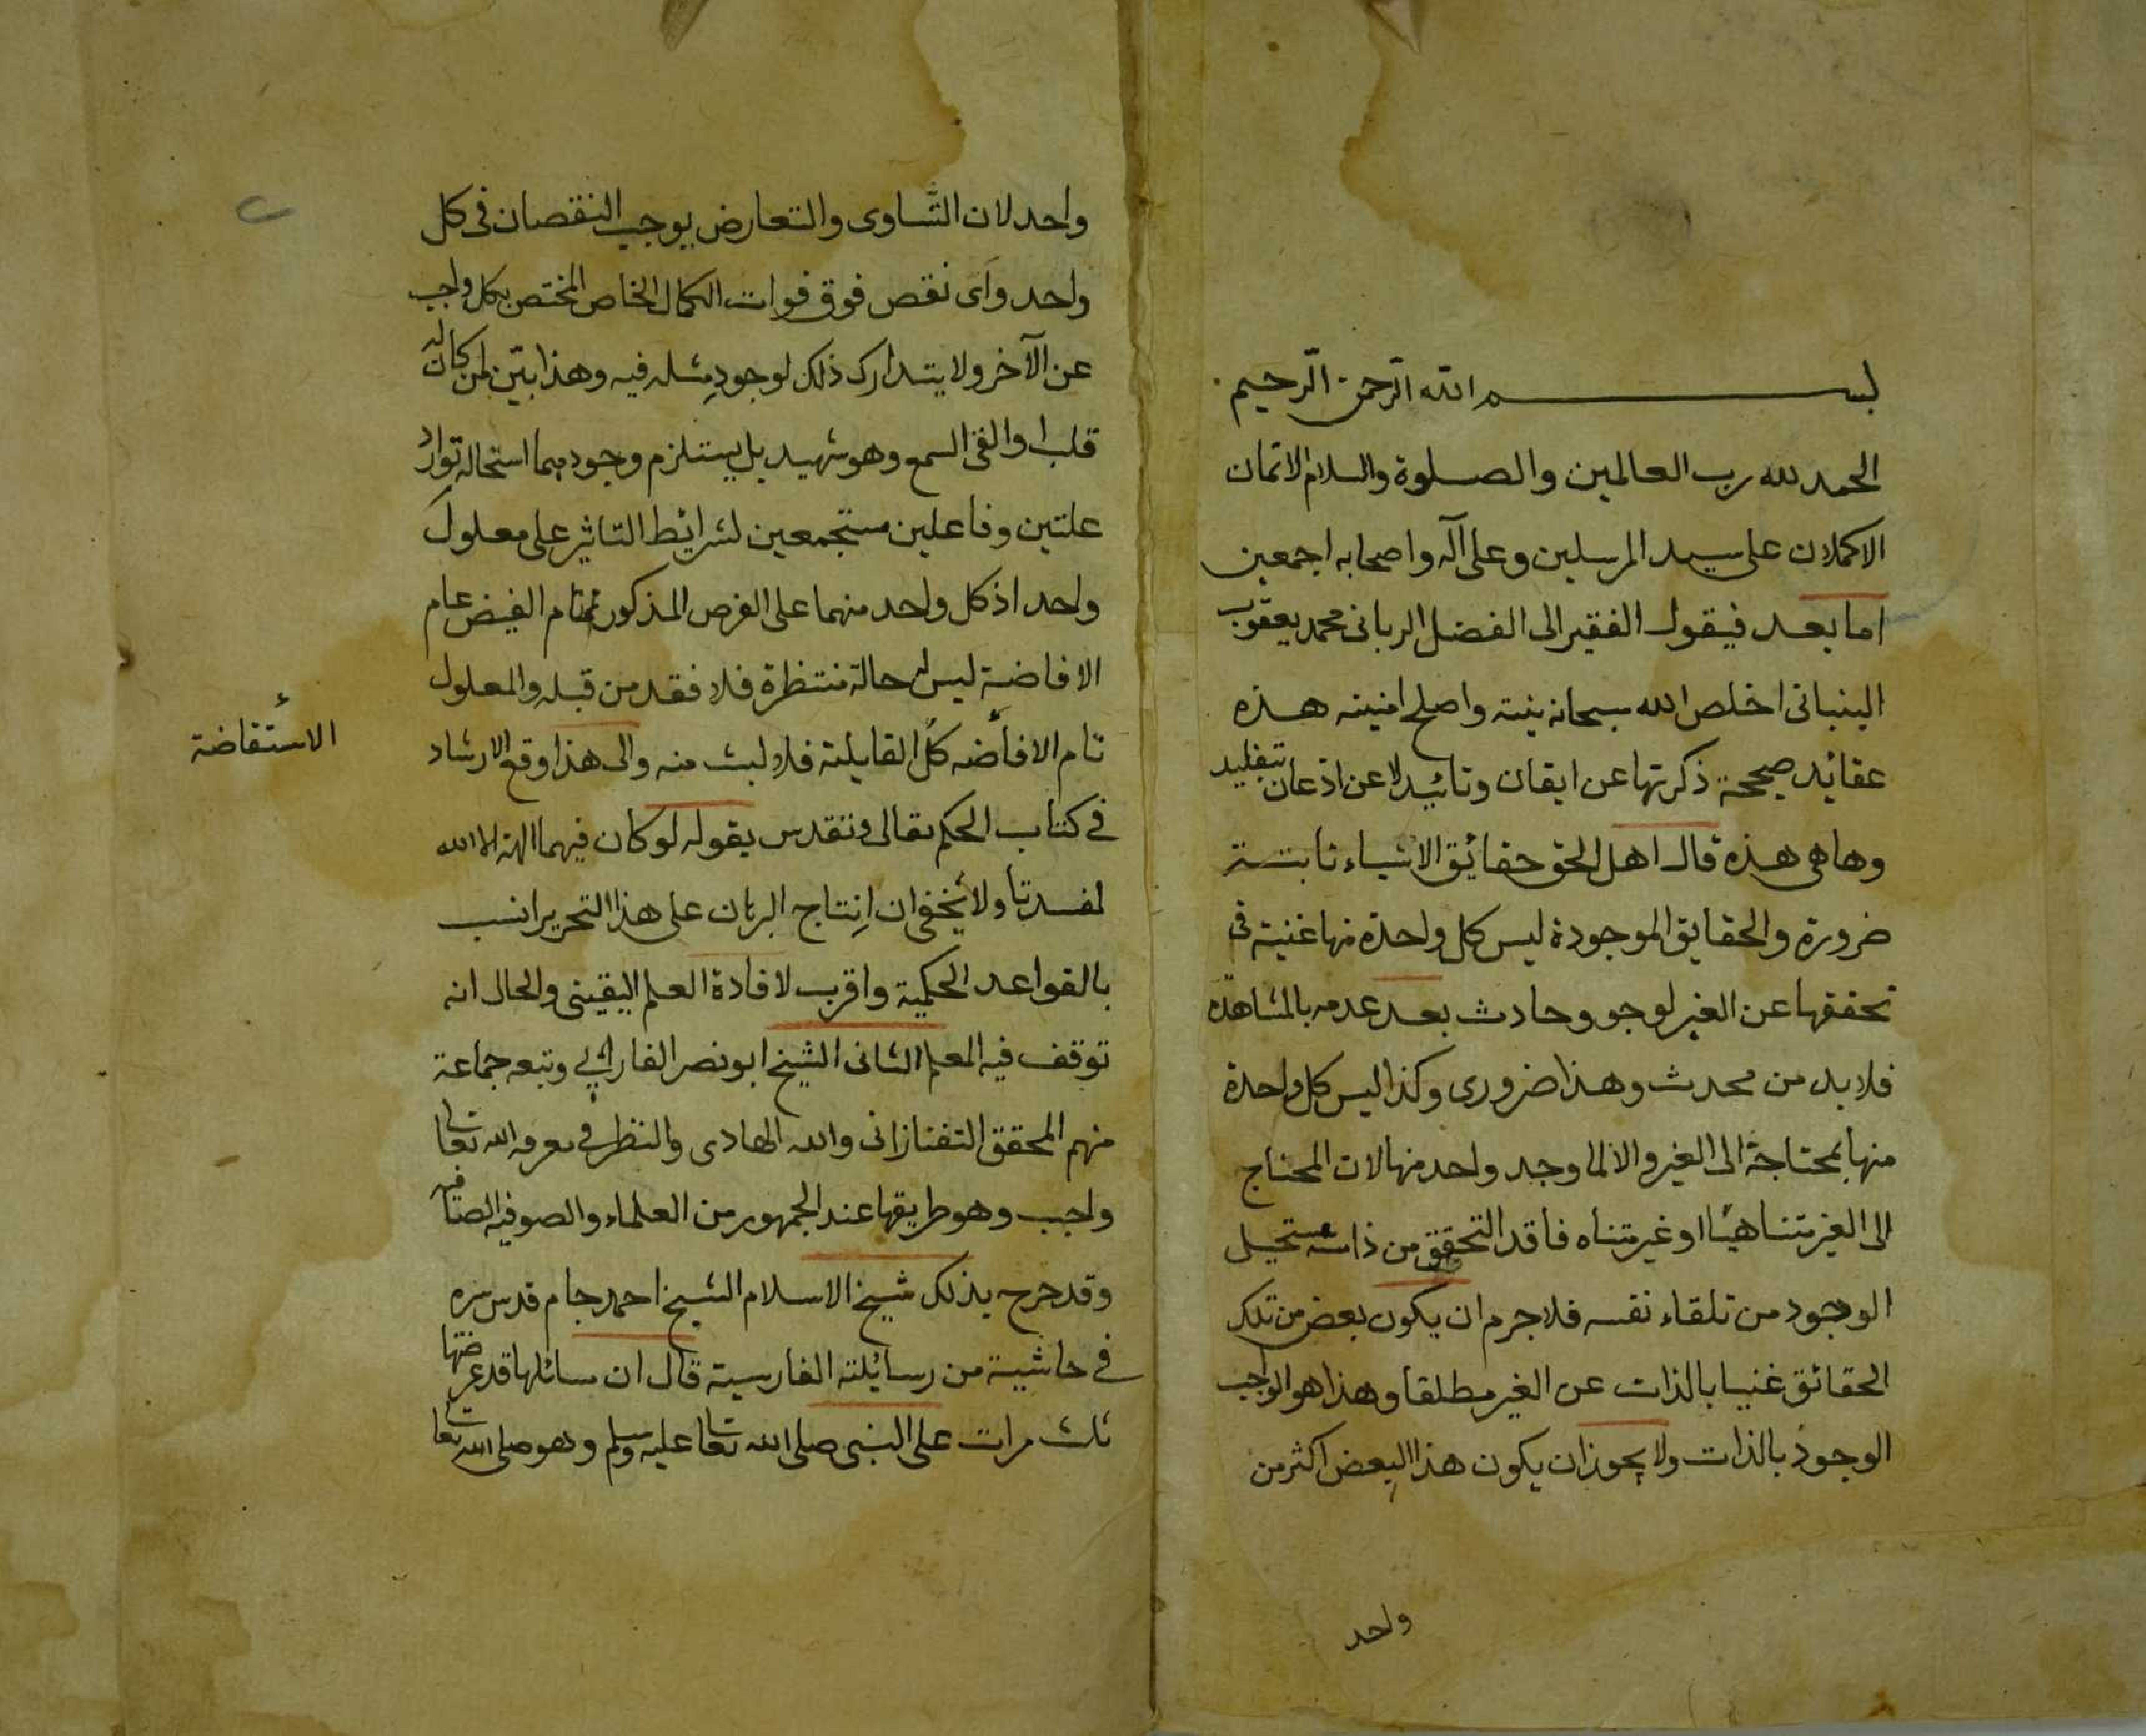 بسم الله الرحمن الرحيم
الحمد لله رب العالمين والصلوة والسلام الاتمان
الاكملان على سيد المرسلين وعلى آله واصحابه اجمعين
اما بعد فيقول الفقير الى الفضل الربانى محمد يعقوب
البنبانى اخلص الله سبحانه نيته واصلح امنيته هذه
عقائد صحيحة ذكرتها عن ايقان وتائيد لا عن اذعان بتقليد
وها هى هذه قال اهل الحق حقائق الاشياء ثابتة
ضرورة والحقايق الموجودة ليس كل واحدة منها غنية فى
تحققها عن الغير لوجو وحادث بعد عدمه بالمشاهدة
فلابد من محدث وهذا ضرورى وكذا ليس كل واحدة
منها بمحتاجة الى الغير والا لما وجد واحد منها لان المحتاج
الى الغير متناهيا او غير متناه فاقد التحقق من ذاته مستحيل
الوجود من تلقاء نفسه فلا جرم ان يكون بعض من تلك
الحقائق غنيا بالذات عن الغير مطلقا وهذا هو الواجب
الوجود بالذات ولا يجوز ان يكون هذا البعض اكثر من
واحد
واحد لان التساوى والتعارض يوجب النقصان فى كل
واحد واى نقص فوق فوات الكمال الخاص المختص بكل واجب
عن الآخر ولا يتدارك ذلك لوجود مثله فيه وهذا بين لمن كان له
قلب او القى السمع وهو شهيد بل يستلزم وجودهما استحالة توارد
علتين وفاعلين مستجمعين لشرائط التاثير على معلول
واحد اذ كل واحد منهما على الفرض المذكور تمام الفيض عام
الافاضة ليس له حالة منتظرة فلا فقد من قبله والمعلول
تام الافاضه كل القابلية فلا لبث منه والى هذا وقع الارشاد
الاستفاضة
فى كتاب الحكم تعالى وتقدس بقوله لو كان فيهما الهة الا الله
لفسدتا ولا يخفى ان انتاج البرهان على هذا التحرير انسب
بالقواعد الحكمية واقرب لافادة العلم اليقينى والحال انه
توقف فيه المعلم الثانى الشيخ ابو نصر الفارابى وتبعه جماعة
منهم المحقق التفتازانى والله الهادى والنظر فى معرفه الله تعالى
واجب وهو طريقها عند الجمهور من العلماء والصوفيه الصافيه
وقد صرح بذلك شيخ الاسلام الشيخ احمد جام قدس سره
فى حاشية من رسائلته الفارسية قال ان مسائلها قد عرضتها
ثلث مرات على النبى صلى الله تعالى عليه وسلم وهو صلى الله تعالى